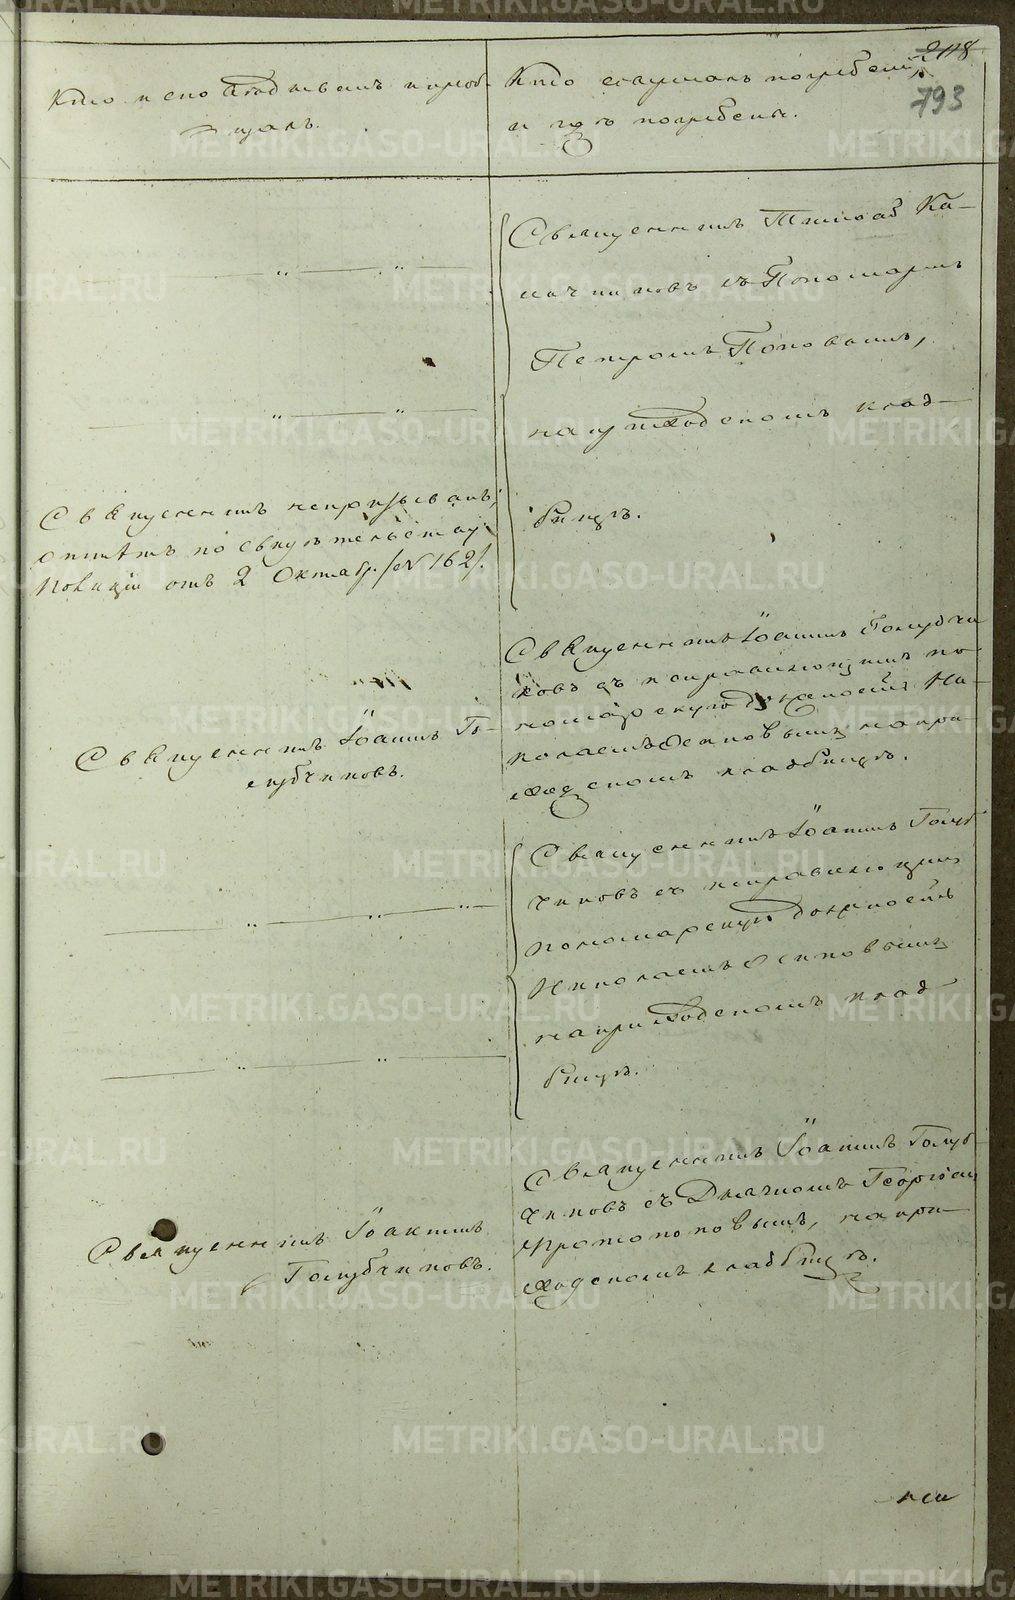 218
793
Кто и кого исповѣдывалъ и пріоб-
щалъ.
Кто совершалъ погребеніе,
и гдѣ погребены.
Священникъ Тимоѳей Ка-
с пономаремъ
Петромъ Поповымъ,
на приходскомъ клад-
бищѣ.
Священникъ
отпѣтъ по свидѣтельству
Полиціи отъ 2 Октябр. /№ 162/.
Священникъ Іоаннъ Голубчи-
ковъ съ исправляющимъ по-
номарскую должность Ни-
колаемъ Осиповымъ на при-
ходскомъ кладбищѣ.
Священникъ Іоаннъ Го-
лубчиковъ.
Священникъ Іоаннъ Голуб-
чиковъ съ исправляющимъ
пономарскую должность
Николаемъ Осиповымъ
на приходскомъ клад-
бищѣ.
Священникъ Іоаннъ Голуб-
чиковъ съ Дьячкомъ Георгіемъ
Протопоповымъ, на при-
ходскомъ кладбищѣ.
Священникъ Іоаннъ
Голубчиковъ.
METRIKI.GASO-URAL.RU